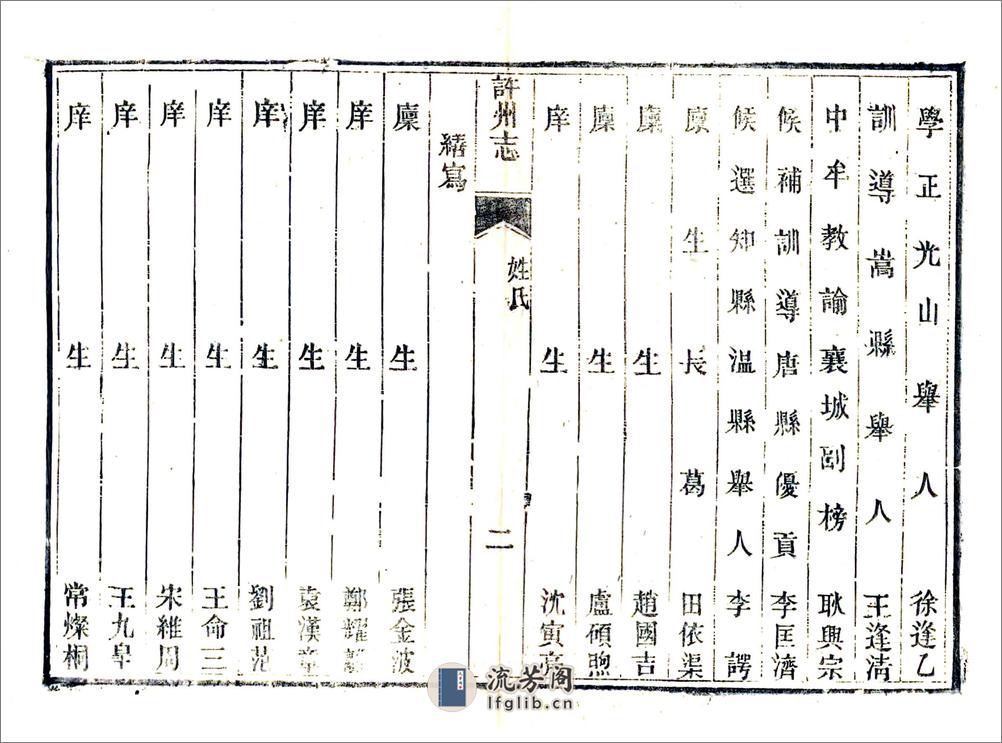 學正光山舉人徐逢乙
訓導嵩縣舉人王逢清
中牟教諭襄城副榜耿興宗
候補訓導唐縣優貢李匡濟
候選知縣温縣舉人李諤
廩生長葛田依渠
廩生趙國吉
廩生盧碩煦
庠生沈寅亮
許州志
姓氏
二
繕寫
廩生張金波
庠生鄭耀
庠生袁漢章
庠生劉祖范
庠生王命三
庠生宋維周
庠生王九皐
庠生常燦桐
流芳阁
lfglib.cn